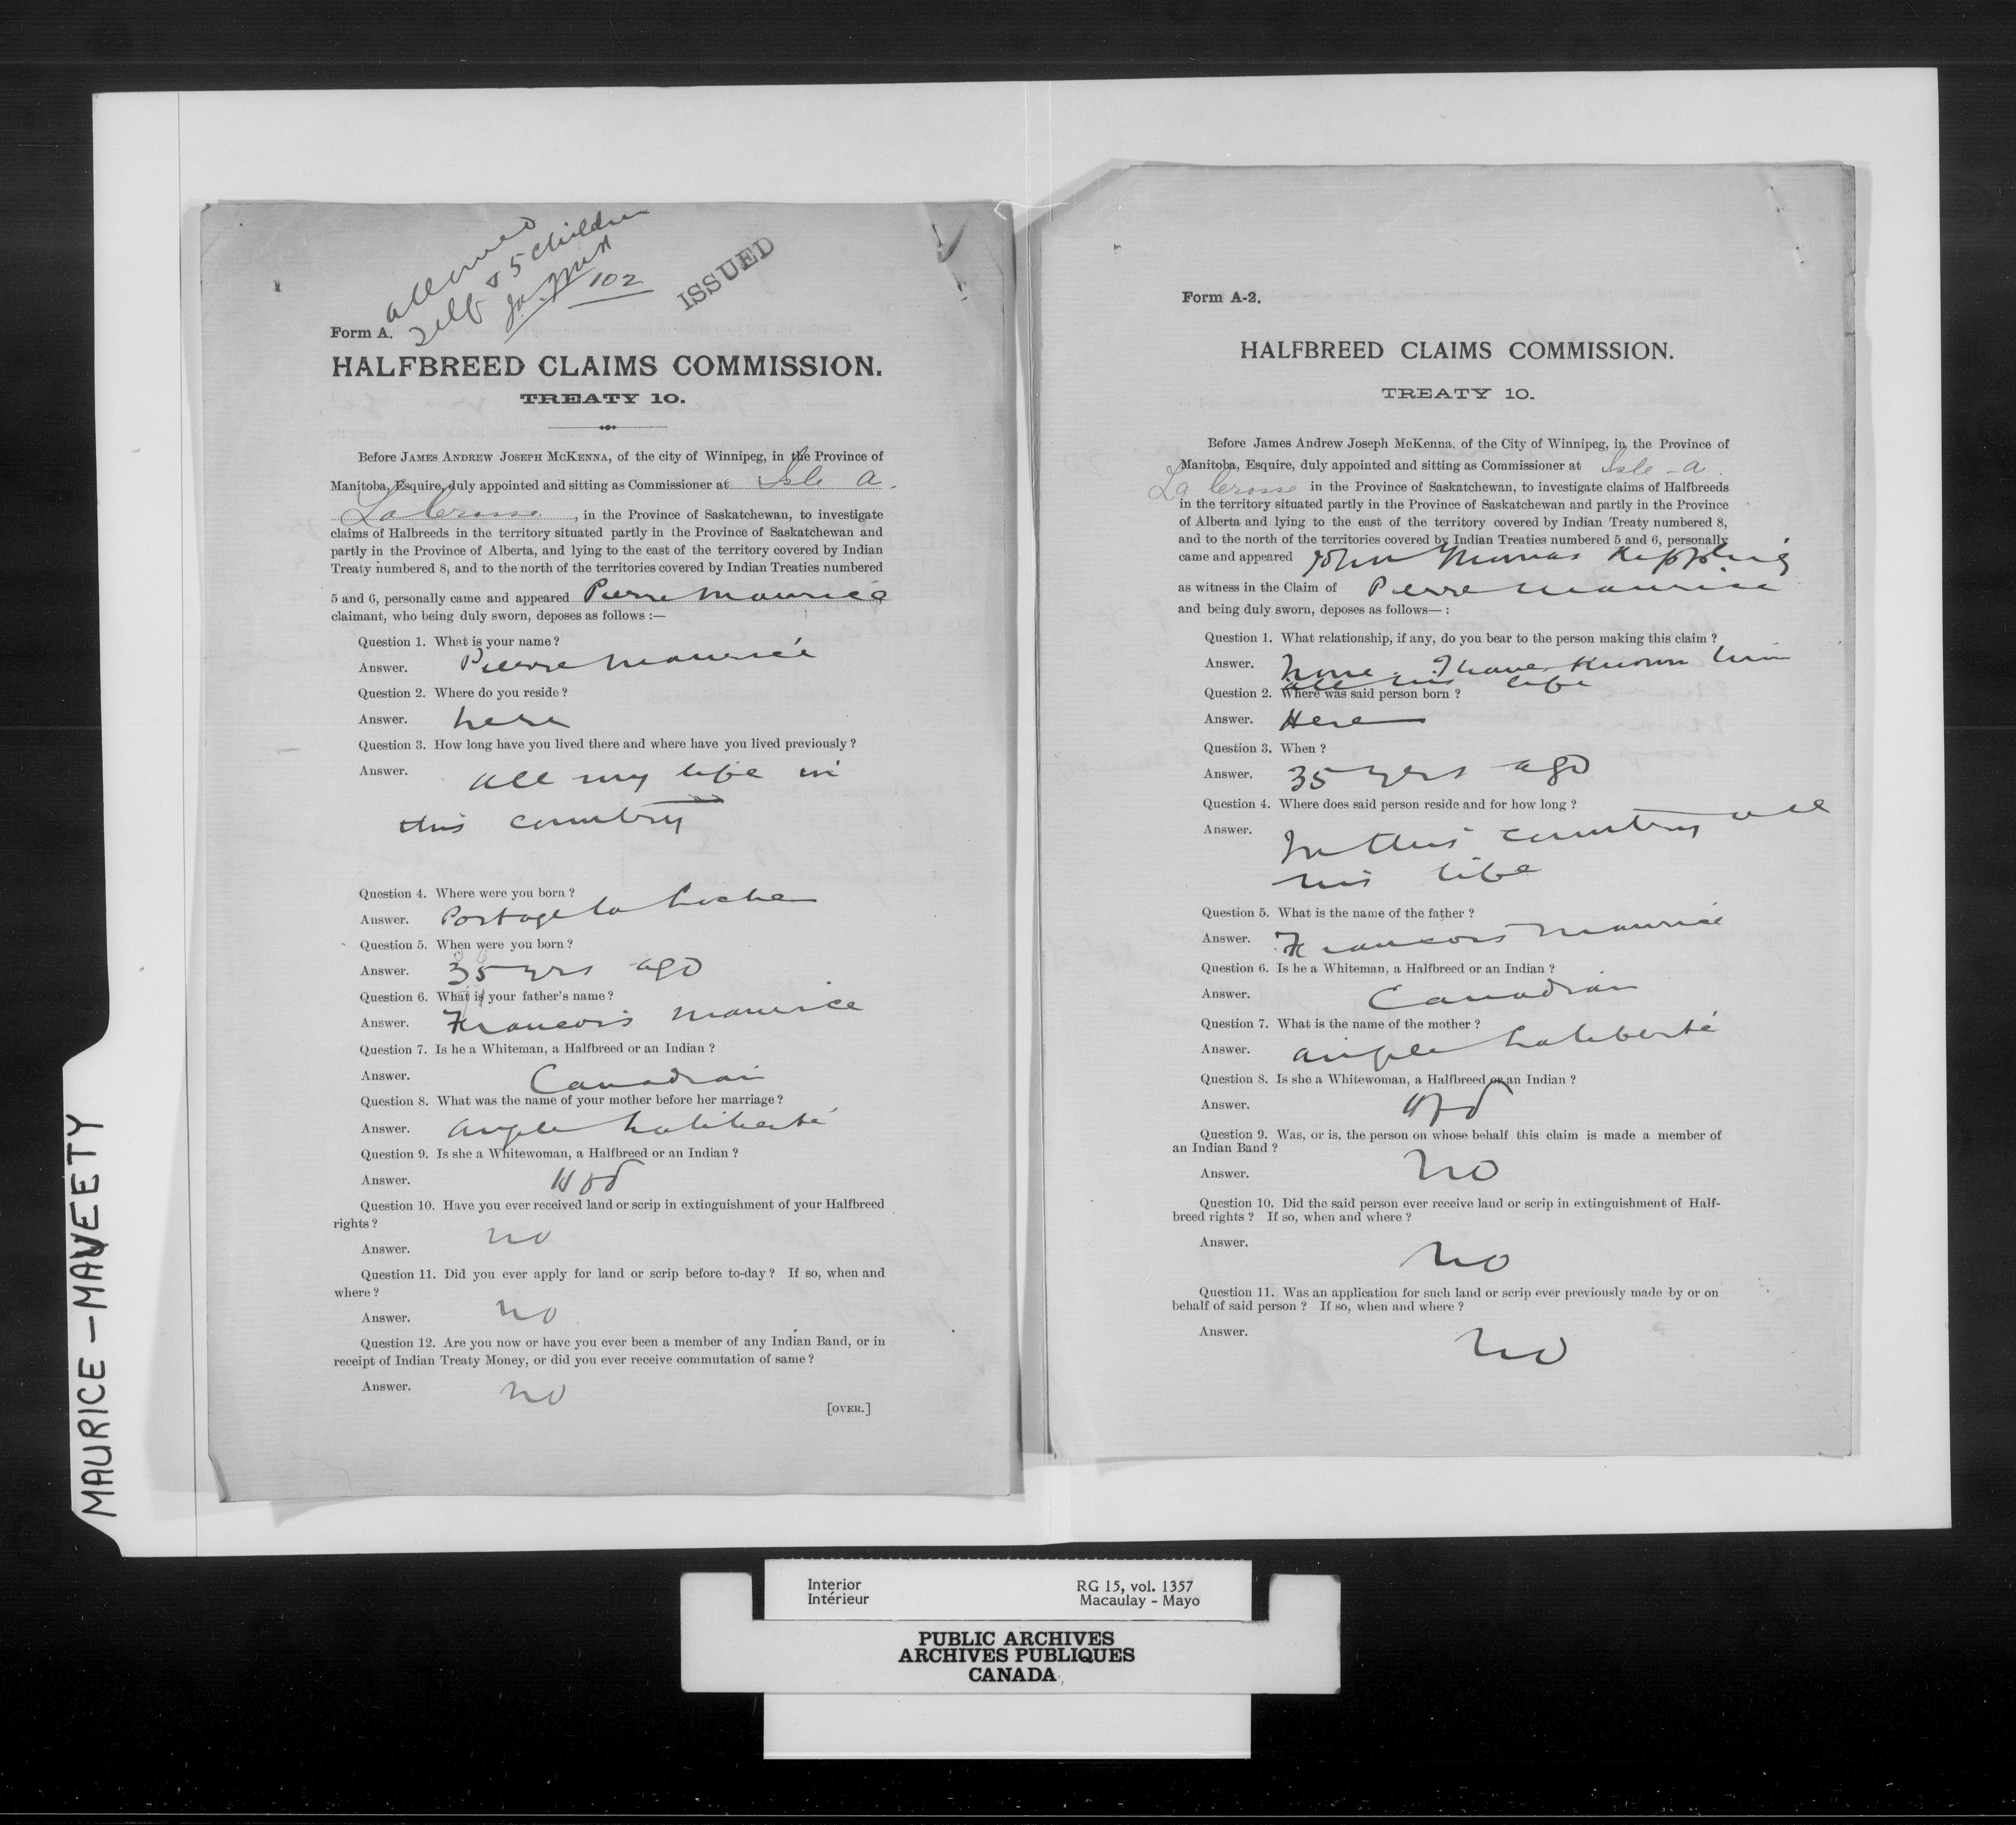 allowed
self & 5 children
102
ISSUED
Form A.
HALFBREED CLAIMS COMMISSION.
TREATY 10.
Before JAMES ANDREW JOSEPH MCKENNA, of the city of Winnipeg, in the Province of
Manitoba, Esquire, duly appointed and sitting as Commissioner at Isle a
La Crosse, in the Province of Saskatchewan, to investigate
claims of Halbreeds in the territory situated partly in the Province of Saskatchewan and
partly in the Province of Alberta, and lying to the east of the territory covered by Indian
Treaty numbered 8, and to the north of the territories covered by Indian Treaties numbered
5 and 6, personally came and appeared Pierre Maurice
claimant, who being duly sworn, deposes as follows :—
Question 1. What is your name ?
Answer. Pierre Maurice
Question 2. Where do you reside ?
Answer. here
Question 3. How long have you lived there and where have you lived previously ?
Answer. all my life in
this country
Question 4. Where were you born ?
Answer. Portage la Loche
Question 5. When were you born ?
Answer. 35 yrs ago
Question 6. What is your father's name ?
Answer. Francois Maurice
Question 7. Is he a Whiteman, a Halfbreed or an Indian ?
Answer. Canadian
Question 8. What was the name of your mother before her marriage ?
Answer. Angele Laliberté
Question 9. Is she a Whitewoman, a Halfbreed or an Indian ?
Answer. Hfd
Question 10. Have you ever received land or scrip in extinguishment of your Halfbreed
rights ?
Answer. no
Question 11. Did you ever apply for land or scrip before to-day ? If so, when and
where ?
Answer. no
Question 12. Are you now or have you ever been a member of any Indian Band, or in
receipt of Indian Treaty Money, or did you ever receive commutation of same ?
Answer. no
[OVER.]
Form A-2.
HALFBREED CLAIMS COMMISSION.
TREATY 10.
Before James Andrew Joseph McKenna, of the City of Winnipeg, in the Province of
Manitoba, Esquire, duly appointed and sitting as Commissioner at Isle - a
La Crosse in the Province of Saskatchewan, to investigate claims of Halfbreeds
in the territory situated partly in the Province of Saskatchewan and partly in the Province
of Alberta and lying to the east of the territory covered by Indian Treaty numbered 8,
and to the north of the territories covered by Indian Treaties numbered 5 and 6, personally
came and appeared John Thomas Kippling
as witness in the Claim of Pierre Maurice
and being duly sworn, deposes as follows— :
Question 1. What relationship, if any, do you bear to the person making this claim ?
Answer. None. I have known him
all his life
Question 2. Where was said person born ?
Answer. Here
Question 3. When ?
Answer. 35 yrs ago
Question 4. Where does said person reside and for how long ?
Answer. In this country all
his life
Question 5. What is the name of the father ?
Answer. Francois Maurice
Question 6. Is he a Whiteman, a Halfbreed or an Indian ?
Answer. Canadian
Question 7. What is the name of the mother ?
Answer. Angele Laliberté
Question 8. Is she a Whitewoman, a Halfbreed or an Indian ?
Answer. Hfd
Question 9. Was, or is, the person on whose behalf this claim is made a member of
an Indian Band ?
Answer. No
Question 10. Did the said person ever receive land or scrip in extinguishment of Half-
breed rights ? If so, when and where ?
Answer. No
Question 11. Was an application for such land or scrip ever previously made by or on
behalf of said person ? If so, when and where ?
Answer. No
MAURICE – MAVEETY
Interior
Intérieur
RG 15, vol. 1357
Macaulay - Mayo
PUBLIC ARCHIVES
ARCHIVES PUBLIQUES
CANADA